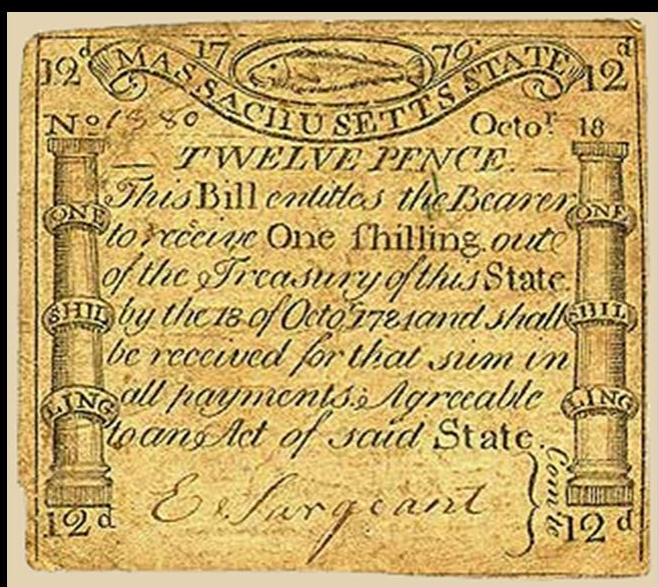 12ᵈ 17 76 12ᵈ
MASSACHUSETTS STATE
Nº 1380 Octoʳ 18
TWELVE PENCE.
This Bill entitles the Bearer
to receive One ſhilling. oute
of the Treasury of this State.
by the 18 of Octoʳ 1784 and shall
be received for that sum in
all payments; Agreeable
to an Act of said State.
ONE
SHIL
LING
ONE
SHIL
LING
E. Sargeant
Comᵗᵉ
12ᵈ 12ᵈ